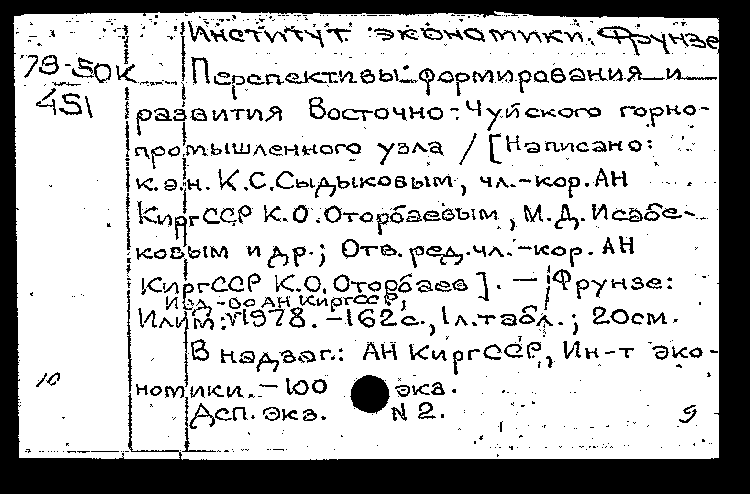 Институт экономики. Фрунзе
78-50к Перспективы формирования и
451 развития Восточно-Чуйского горно-
промышленного узла / [Написано:
к.э.н. К.С.Сыдыковым, чл.-кор. АН
КиргССР К.О.Оторбаевым, М.Д.Исабе-
ковым и др.; Отв.ред.чл.-кор. АН
КиргССР К.О.Оторбаев]. — Фрунзе:
Изд.-во АН КиргССР,
Илим: 1978. -162с., 1л.табл.; 20см.
В надзаг.: АН КиргССР, Ин-т эко-
10 номики. -100 экз.
Деп. экз. N 2. 9